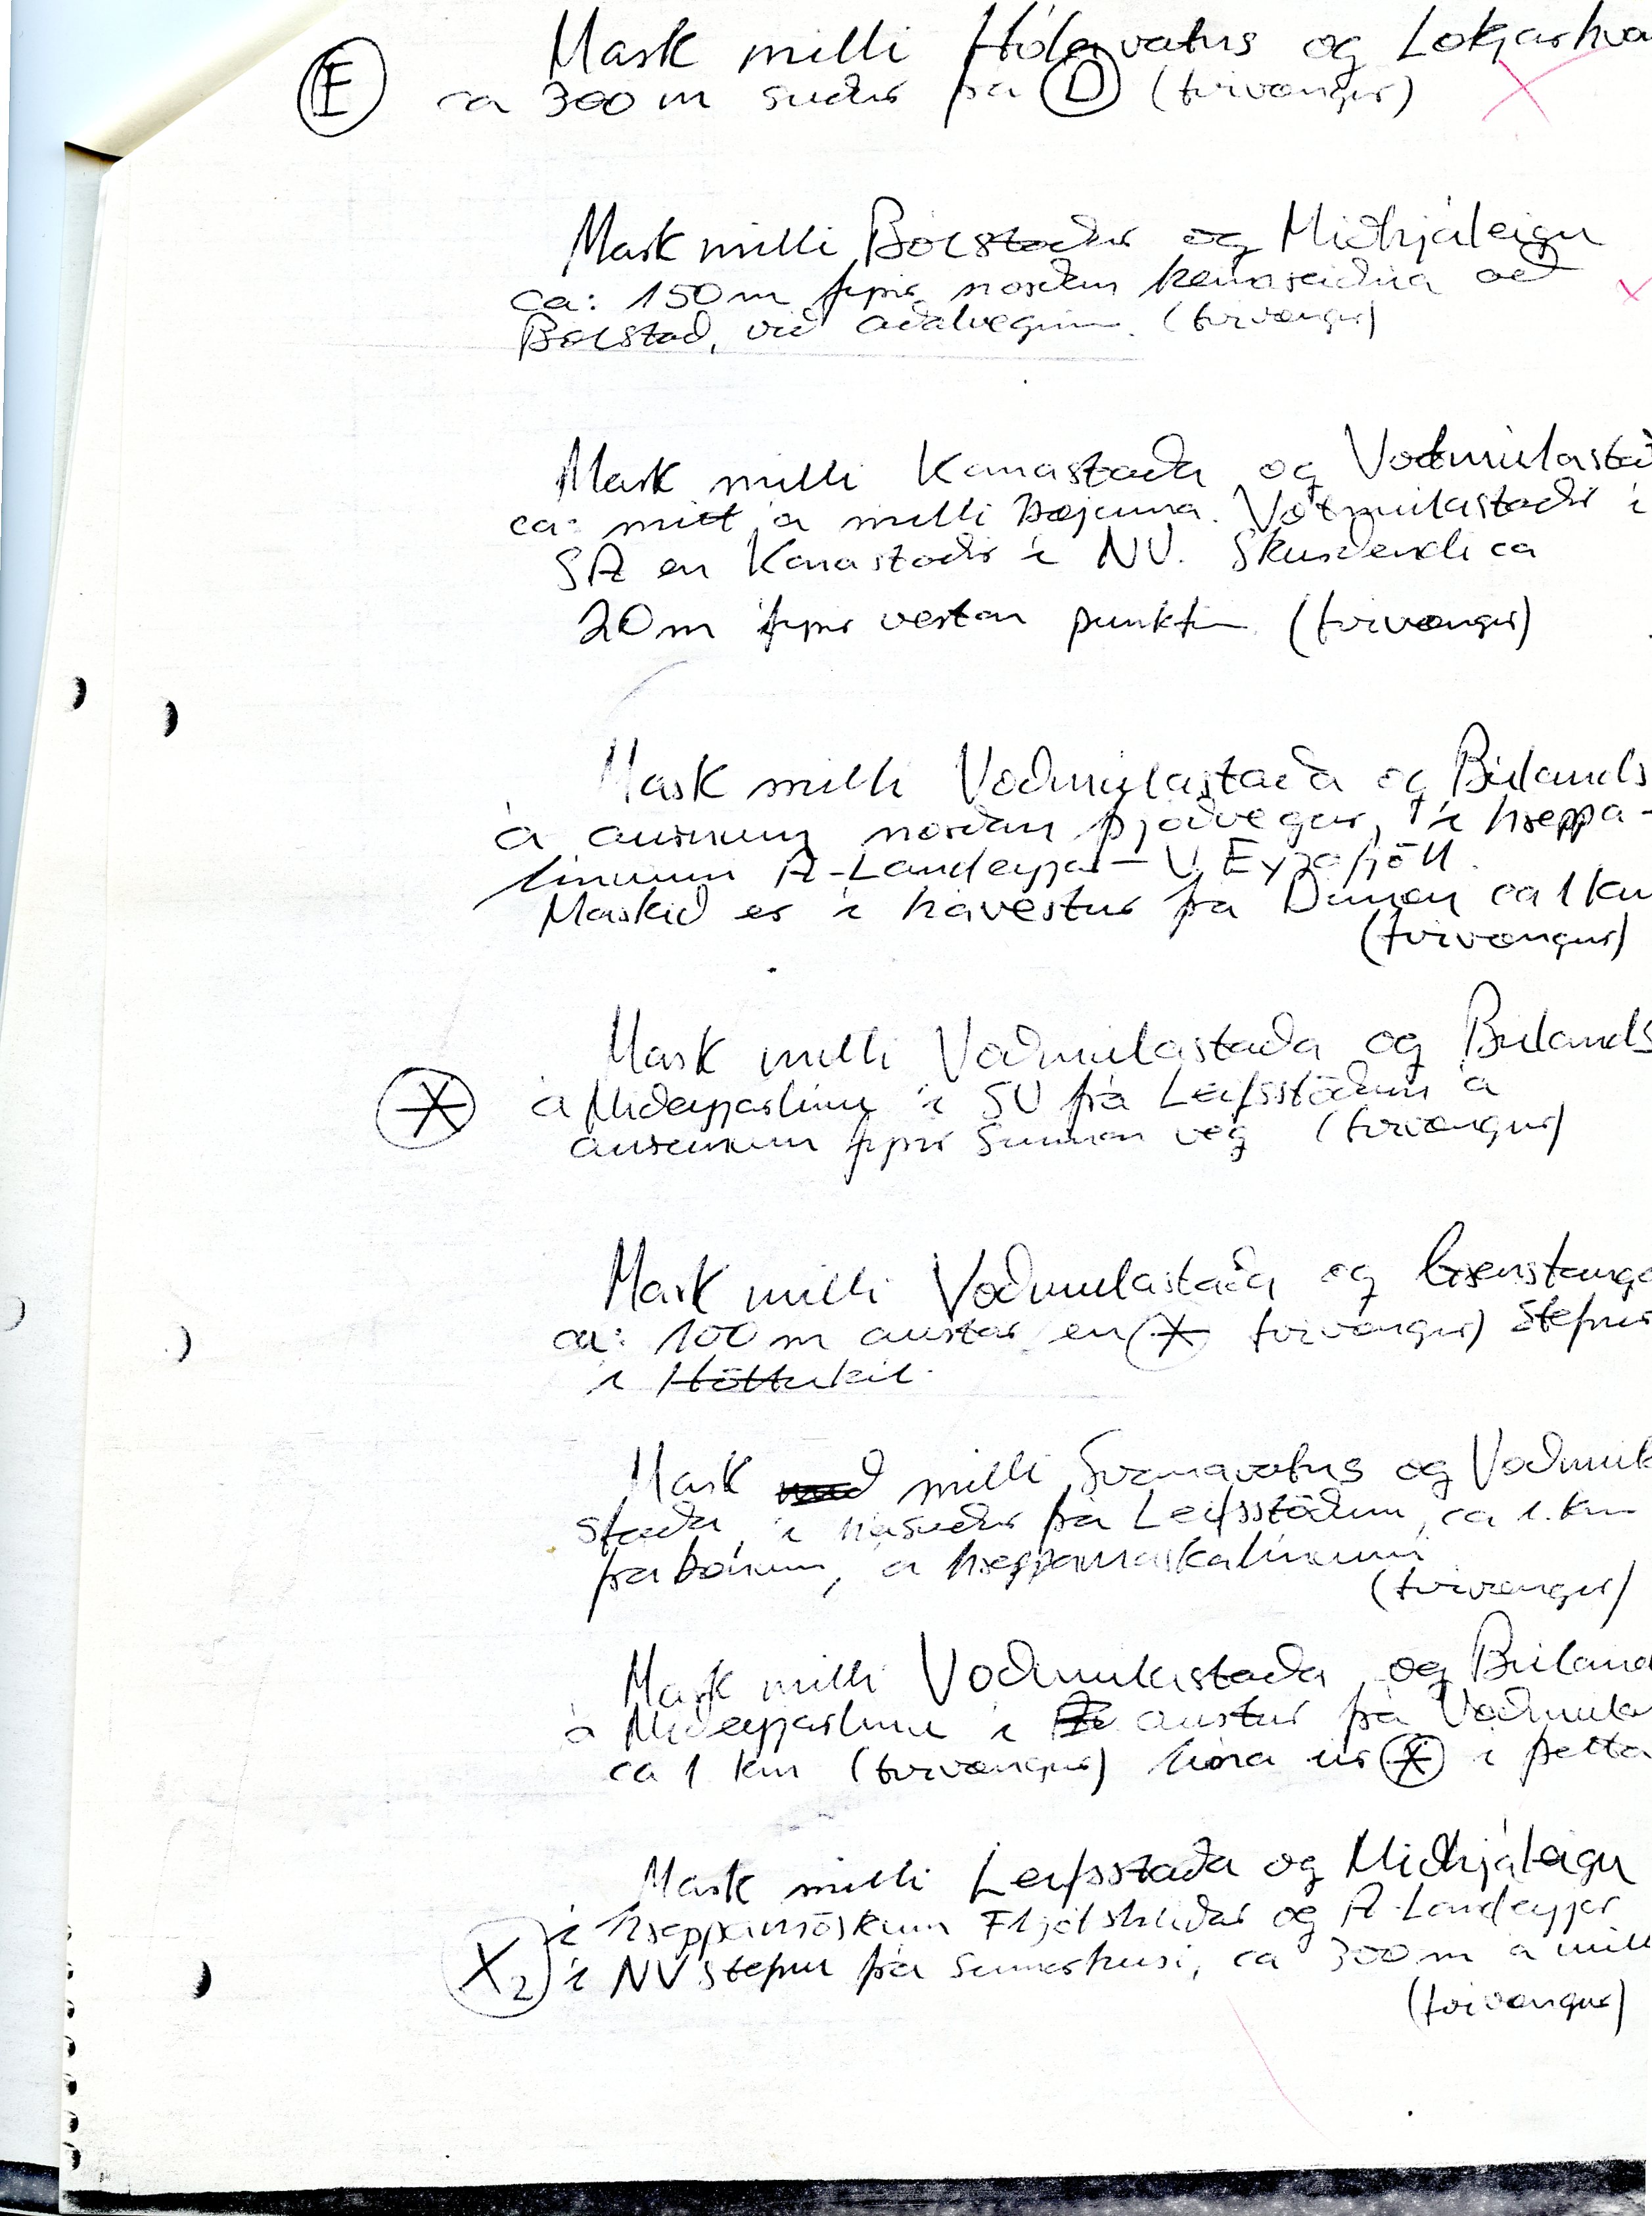 Mark milli Hólavatns og Lokjarhva
E ca 300 m suður frá D (tvívængur)
Mark milli Bólstaður og Miðhjáleigu
ca: 150 m fyrir norðan heimreiðina að
Bólstað, við aðalveginn. (tvívængur)
Mark milli Kanastaða og Voðmúlastað
ca: mitt á milli bæjanna. Voðmúlastaðir í
SA en Kanastaðir í NV. Skurðendi ca
20 m fyrir vestan punktin (tvívængur)
Mark milli Voðmúlastaða og Búlands
á aurunum norðan þjóðvegar, í hreppa-
línunni A-Landeyjar - V. Eyjafjöll.
Markið er í hávestur frá Dímon ca 1 km
(tvívængur)
Mark milli Voðmúlastaða og Búlands
á Miðeyjarlínu í SV frá Leifsstöðum á
aurunum fyrir sunnan veg (tvívængur)
Mark milli Voðmúlastaða og
ca: 100 m austar en tvívængur) Stefnir
í
Mark milli Svanavatns og Voðmúl
staða, í hásuður frá Leifsstöðum, ca 1. km
frá bænum, á hreppamarkalínunni
(tvívængur)
Mark milli Voðmúlastaða og Búland
á Miðeyjarlínu í austur frá Voðmúla
ca 1 km (tvívængur) lína úr í þetta
Mark milli Leifsstaða og Miðhjáleigu
í hreppamörkum Fljótshlíðar og A-Landeyjar
X2 í NV stefnu frá Sumarhúsi, ca 300 m á mill
(tvívængur)